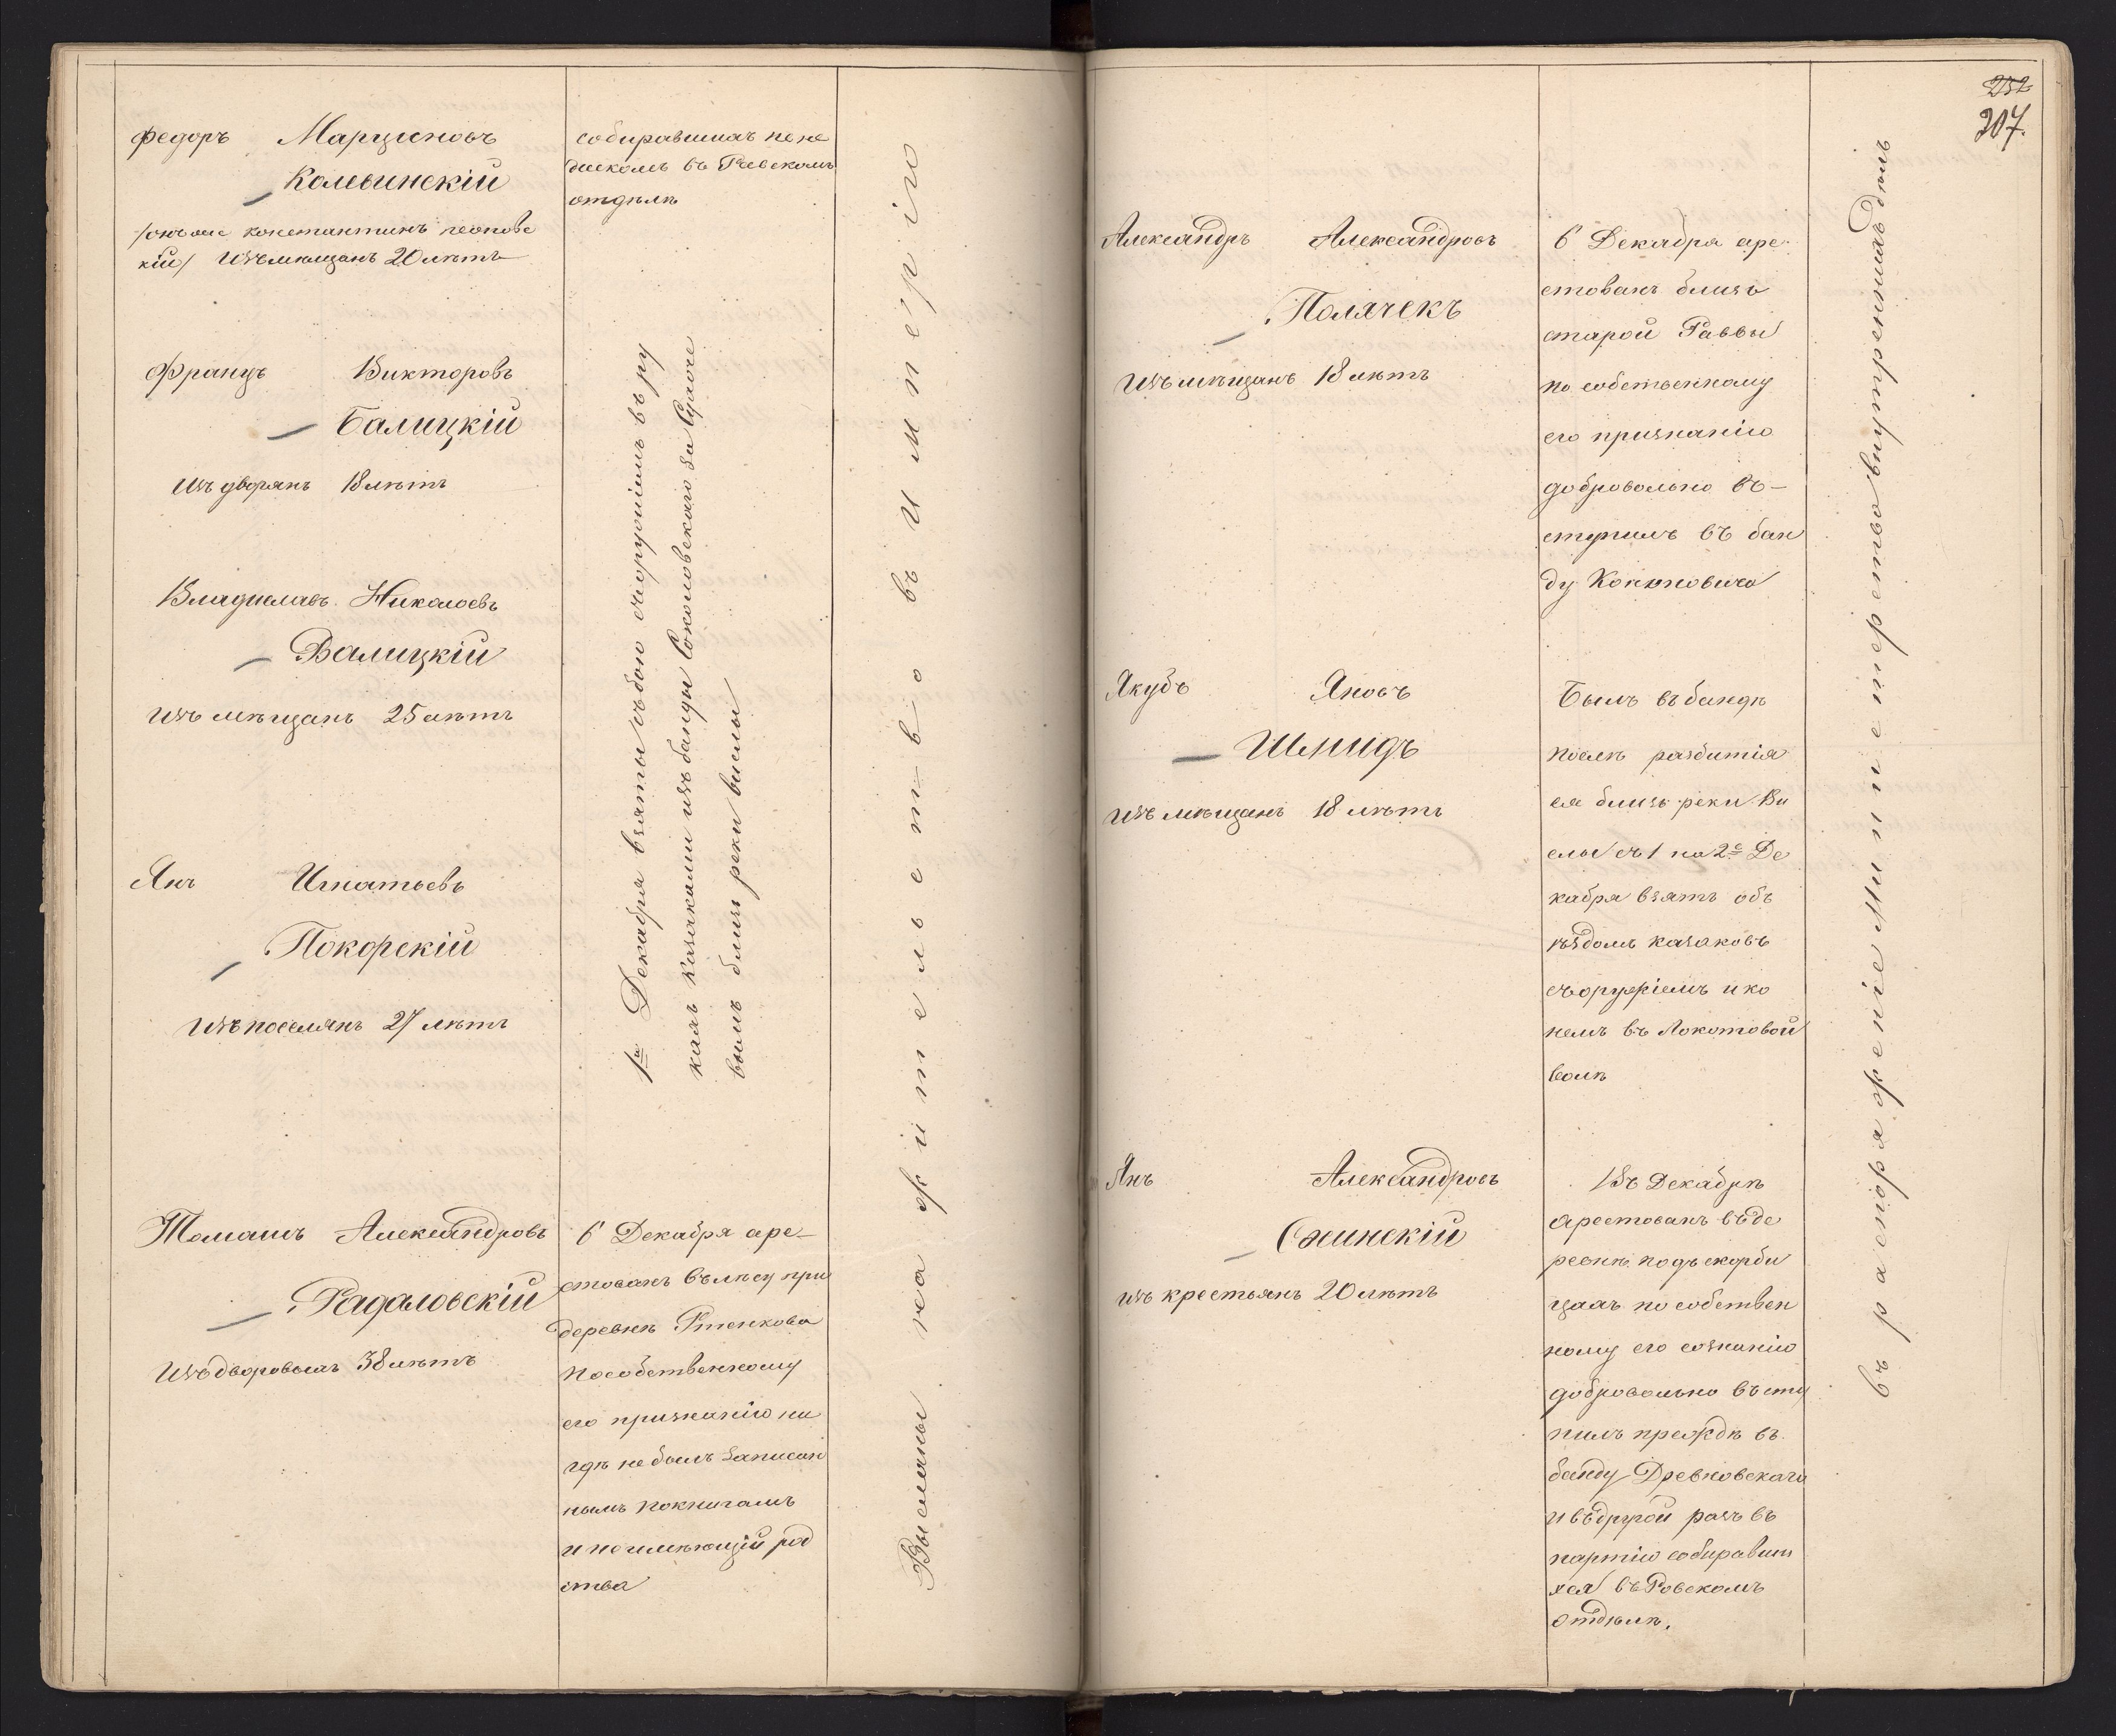 Федоръ Марциновъ
Колвинскій
/онъ же константинъ
кій/ Изъ мѣщанъ 20 лѣтъ
собиравшихъ
въ Равскомъ
отдѣлѣ
Францъ Викторовъ
Балицкій
Изъ дворянъ 18 лѣтъ
Владиславъ Николаевъ
Валицкій
Изъ мѣщанъ 25 лѣтъ
Янъ Игнатьевъ
Покорскій
Изъ поселянъ 27 лѣтъ
1го Декабря взяты съ бою съ оружіемъ въ ру
кахъ казаками изъ банды Соколовскаго за
вымъ близъ реки вислы
Томашъ Александровъ
Радаловскій
Изъ дворовыхъ 38 лѣтъ
6 Декабря аре-
стованъ въ лѣсу при
деревнѣ
по собственному
его признанію ни
гдѣ не былъ записан
нымъ по книгамъ
и не имѣющій род
ства
Высланы на жительство въ имперію
252
207.
Александръ Александровъ
Полячекъ
Изъ мѣщанъ 18 лѣтъ
6 Декабря аре-
стованъ близъ
старой Раввы
по собственному
его признанію
добровольно въ-
ступилъ въ бан
ду Кононовича
Якубъ Яновъ
Шмидъ
Изъ мѣщанъ 18 лѣтъ
Былъ въ бандѣ
послѣ разбитія
ея близъ реки Ви
слы съ 1 на 2е Де
кабря взятъ объ
ѣздомъ казаковъ
съ оружіемъ и ко
немъ въ Локотовой
волѣ
Янъ Александровъ
Сжинскій
изъ крестьянъ 20 лѣтъ
18ъ Декабрѣ
арестованъ въ де
ревнѣ подъ скорби
цахъ по собствен
ному его сознанію
добровольно въсту
пилъ прежде въ
банду Древновскаго
и въ другой разъ въ
партію собиравш
хся въ Ровскомъ
Отдѣлѣ.
въ распоряженіе Министерство внутреннихъ дѣлъ